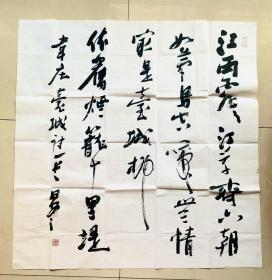 江雨霏霏江草齊六朝
如夢鳥空啼無情
最是臺城柳
依舊煙籠十里堤
韋莊臺城詩一首